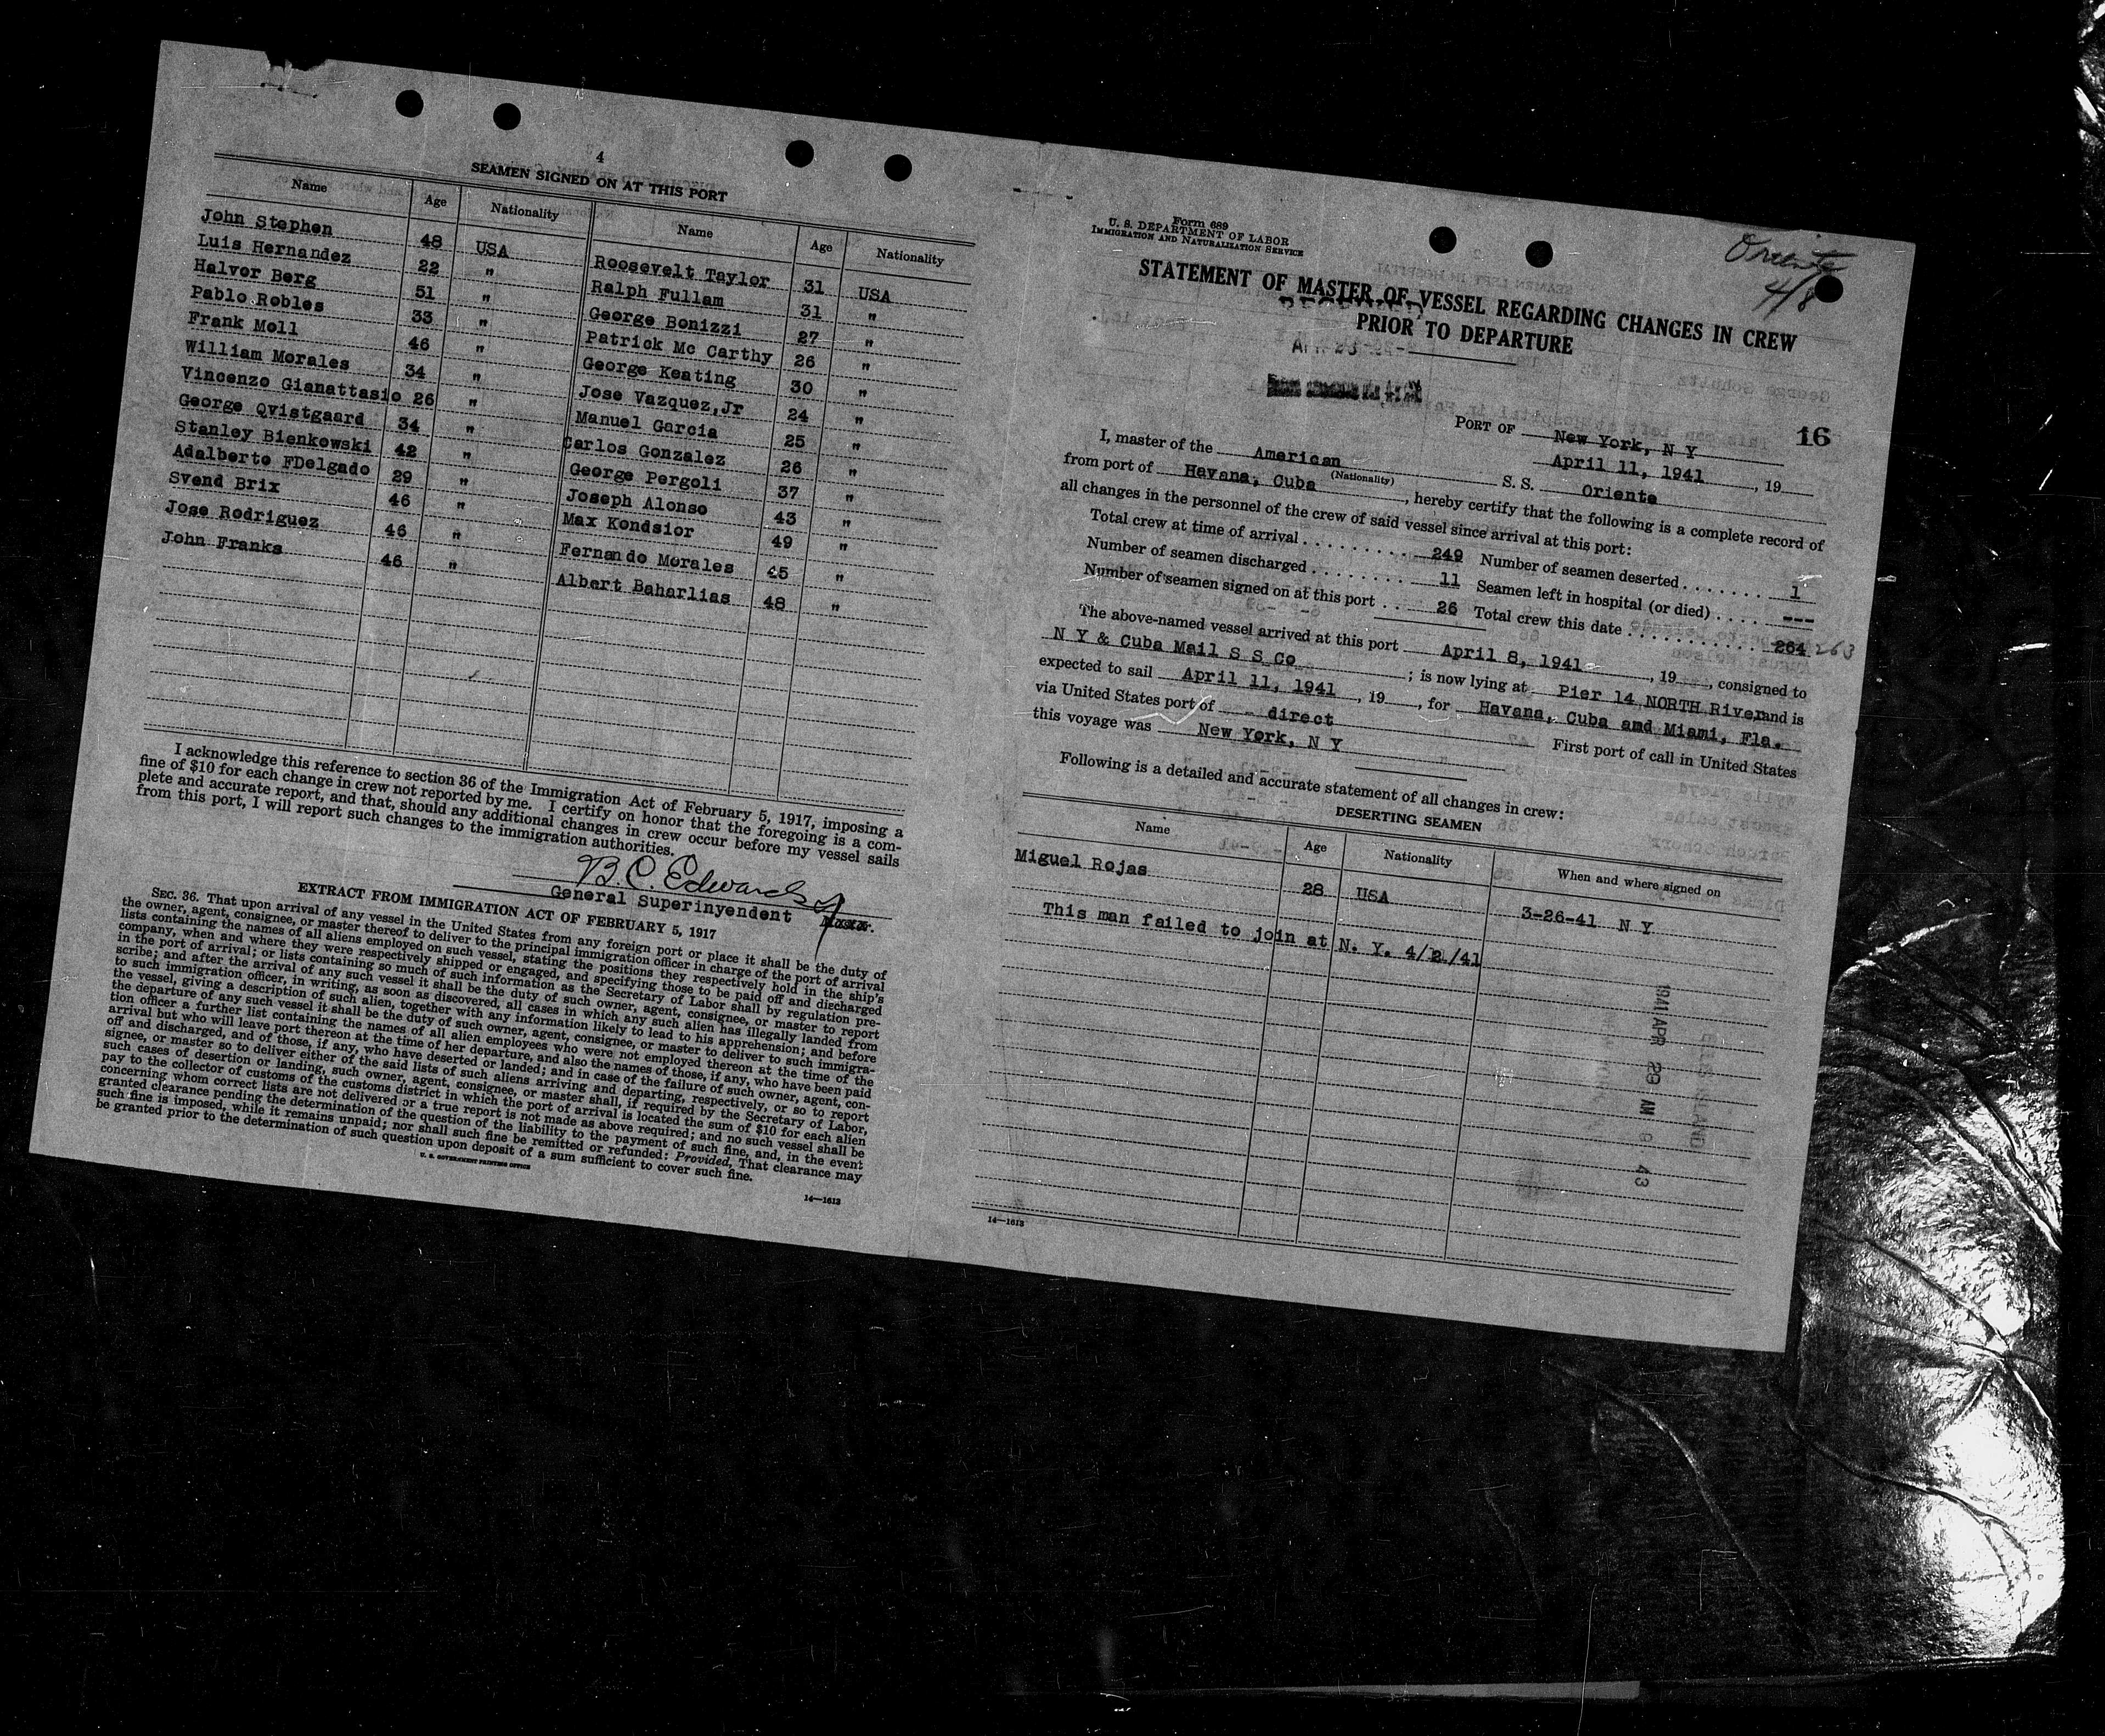 4
SEAMEN SIGNED ON AT THIS PORT
Name Age Nationality Name Age Nationality
John Stephen 48 USA Roosevelt Taylor 31 USA
Luis Hernandez 22 " Ralph Fullam 31 "
Halvor Berg 51 " George Bonizzi 27 "
Pablo Robles 33 " Patrick Mc Carthy 26 "
Frank Moll 46 " George Keating 30 "
William Morales 34 " Jose Vazquez,Jr 24 "
Vincenzo Gianattasio 26 " Manuel Garcia 25 "
George Qvistgaard 34 " Carlos Gonzalez 26 "
Stanley Bienkowski 42 " George Pergoli 37 "
Adalberto FDelgado 29 " Joseph Alonso 43 "
Svend Brix 46 " Max Kondsior 49 "
Jose Rodriguez 46 " Fernando Morales 45 "
John Franks 46 " Albert Baharlias 48 "
I acknowledge this reference to section 36 of the Immigration Act of February 5, 1917, imposing a
fine of $10 for each change in crew not reported by me. I certify on honor that the foregoing is a com-
plete and accurate report, and that, should any additional changes in crew occur before my vessel sails
from this port, I will report such changes to the immigration authorities.
B. C. Edwards
General Superinyendent
EXTRACT FROM IMMIGRATION ACT OF FEBRUARY 5, 1917
SEC. 36. That upon arrival of any vessel in the United States from any foreign port or place it shall be the duty of
the owner, agent, consignee, or master thereof to deliver to the principal immigration officer in charge of the port of arrival
lists containing the names of all aliens employed on such vessel, stating the positions they respectively hold in the ship's
company, when and where they were respectively shipped or engaged, and specifying those to be paid off and discharged
in the port of arrival; or lists containing so much of such information as the Secretary of Labor shall by regulation pre-
scribe; and after the arrival of any such vessel it shall be the duty of such owner, agent, consignee, or master to report
to such immigration officer, in writing, as soon as discovered, all cases in which any such alien has illegally landed from
the vessel, giving a description of such alien, together with any information likely to lead to his apprehension; and before
the departure of any such vessel it shall be the duty of such owner, agent, consignee, or master to deliver to such immigra-
tion officer a further list containing the names of all alien employees who were not employed thereon at the time of the
arrival but who will leave port thereon at the time of her departure, and also the names of those, if any, who have been paid
off and discharged, and of those, if any, who have deserted or landed; and in case of the failure of such owner, agent, con-
signee, or master so to deliver either of the said lists of such aliens arriving and departing, respectively, or so to report
such cases of desertion or landing, such owner, agent, consignee, or master shall, if required by the Secretary of Labor,
pay to the collector of customs of the customs district in which the port of arrival is located the sum of $10 for each alien
concerning whom correct lists are not delivered or a true report is not made as above required; and no such vessel shall be
granted clearance pending the determination of the question of the liability to the payment of such fine, and, in the event
such fine is imposed, while it remains unpaid; nor shall such fine be remitted or refunded: Provided, That clearance may
be granted prior to the determination of such question upon deposit of a sum sufficient to cover such fine.
U. S. GOVERNMENT PRINTING OFFICE
14—1613
Oriente
4/8
Form 689
U. S. DEPARTMENT OF LABOR
IMMIGRATION AND NATURALIZATION SERVICE
STATEMENT OF MASTER OF VESSEL REGARDING CHANGES IN CREW
PRIOR TO DEPARTURE
16
PORT OF New York, N Y
April 11, 1941, 19
I, master of the American S. S. Oriente
(Nationality)
from port of Havana, Cuba, hereby certify that the following is a complete record of
all changes in the personnel of the crew of said vessel since arrival at this port:
Total crew at time of arrival 249 Number of seamen deserted 1
Number of seamen discharged 11 Seamen left in hospital (or died) ---
Number of seamen signed on at this port 26 Total crew this date 264 263
The above-named vessel arrived at this port April 8, 1941, 19, consigned to
N Y & Cuba Mail S S Co; is now lying at Pier 14 NORTH River and is
expected to sail April 11, 1941, 19, for Havana, Cuba and Miami, Fla.
via United States port of direct First port of call in United States
this voyage was New York, N Y
Following is a detailed and accurate statement of all changes in crew:
DESERTING SEAMEN
Name Age Nationality When and where signed on
Miguel Rojas 28 USA 3-26-41 N Y
This man failed to join at N. Y. 4/ /41
1941 APR 29 AM 9 43
ELLIS ISLAND
14—1613